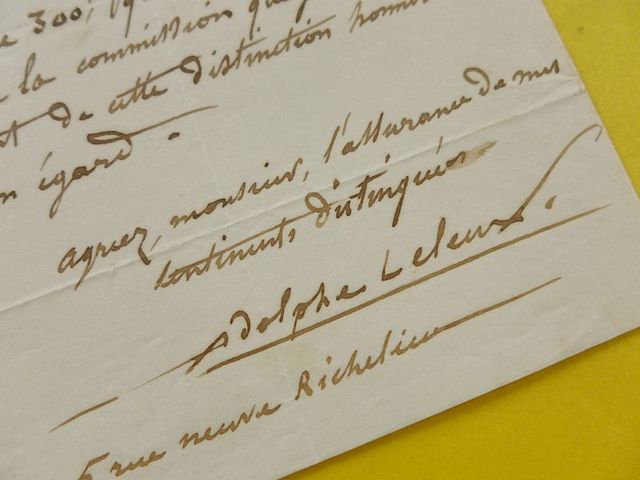 300,
la commission que
de cette distinction honor
n égard.
agréez, monsieur, l'assurance de mes
sentiments distingués
Adolphe Leleux.
5 rue neuve Richelieu